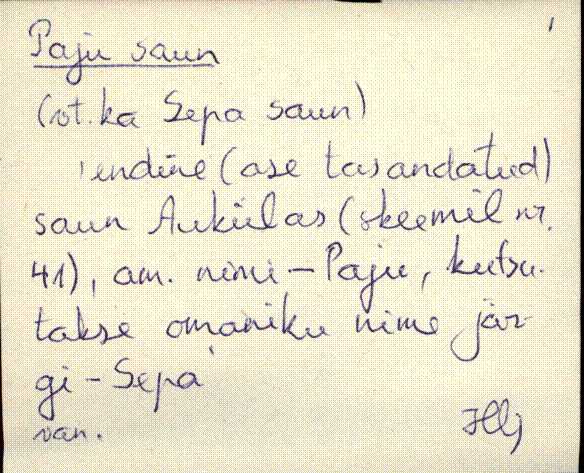 Paju saun
(vt. ka Sepa saun)
'endine (ase tasandatud)
saun Aukülas (skeemil nr.
41), am. nimi - Paju, kutsu-
takse omaniku nime jär-
gi - Sepa
van.